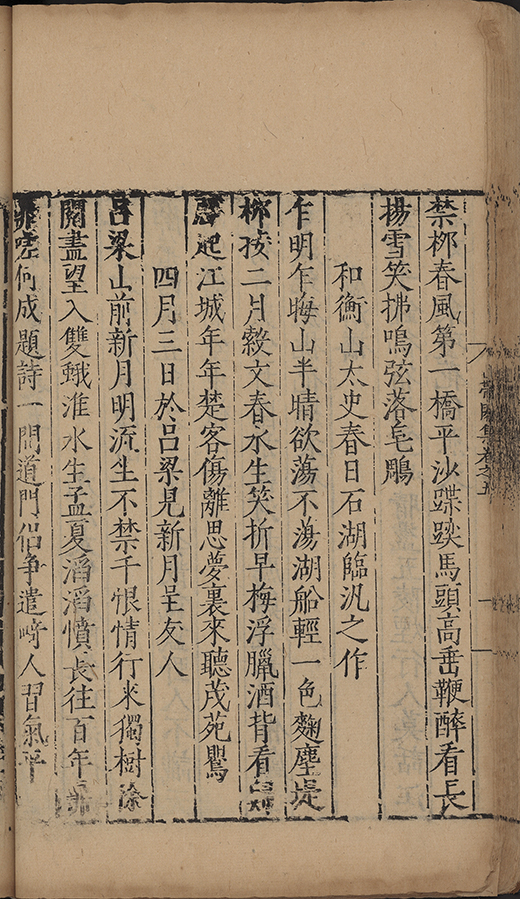 禁栁春風第一橋平沙蹀躞馬頭高垂鞭醉看長
楊雪笑拂鳴弦落皂鵰
和衡山太史春日石湖臨汎之作
乍明乍晦山半晴欲蕩不蕩湖船輕一色麴塵堤
栁按二月縠文春水生笑折早梅浮臘酒背看
起江城年年楚客傷離思夢裏來聽茂苑鸎
四月三日於呂梁見新月呈友人
呂梁山前新月明流生不禁千恨情行來獨樹陰
閱盡望入雙蛾淮水生孟夏滔滔憤長往百年
何成題詩一問道門侣爭遣﨑人習氣平
集卷之五